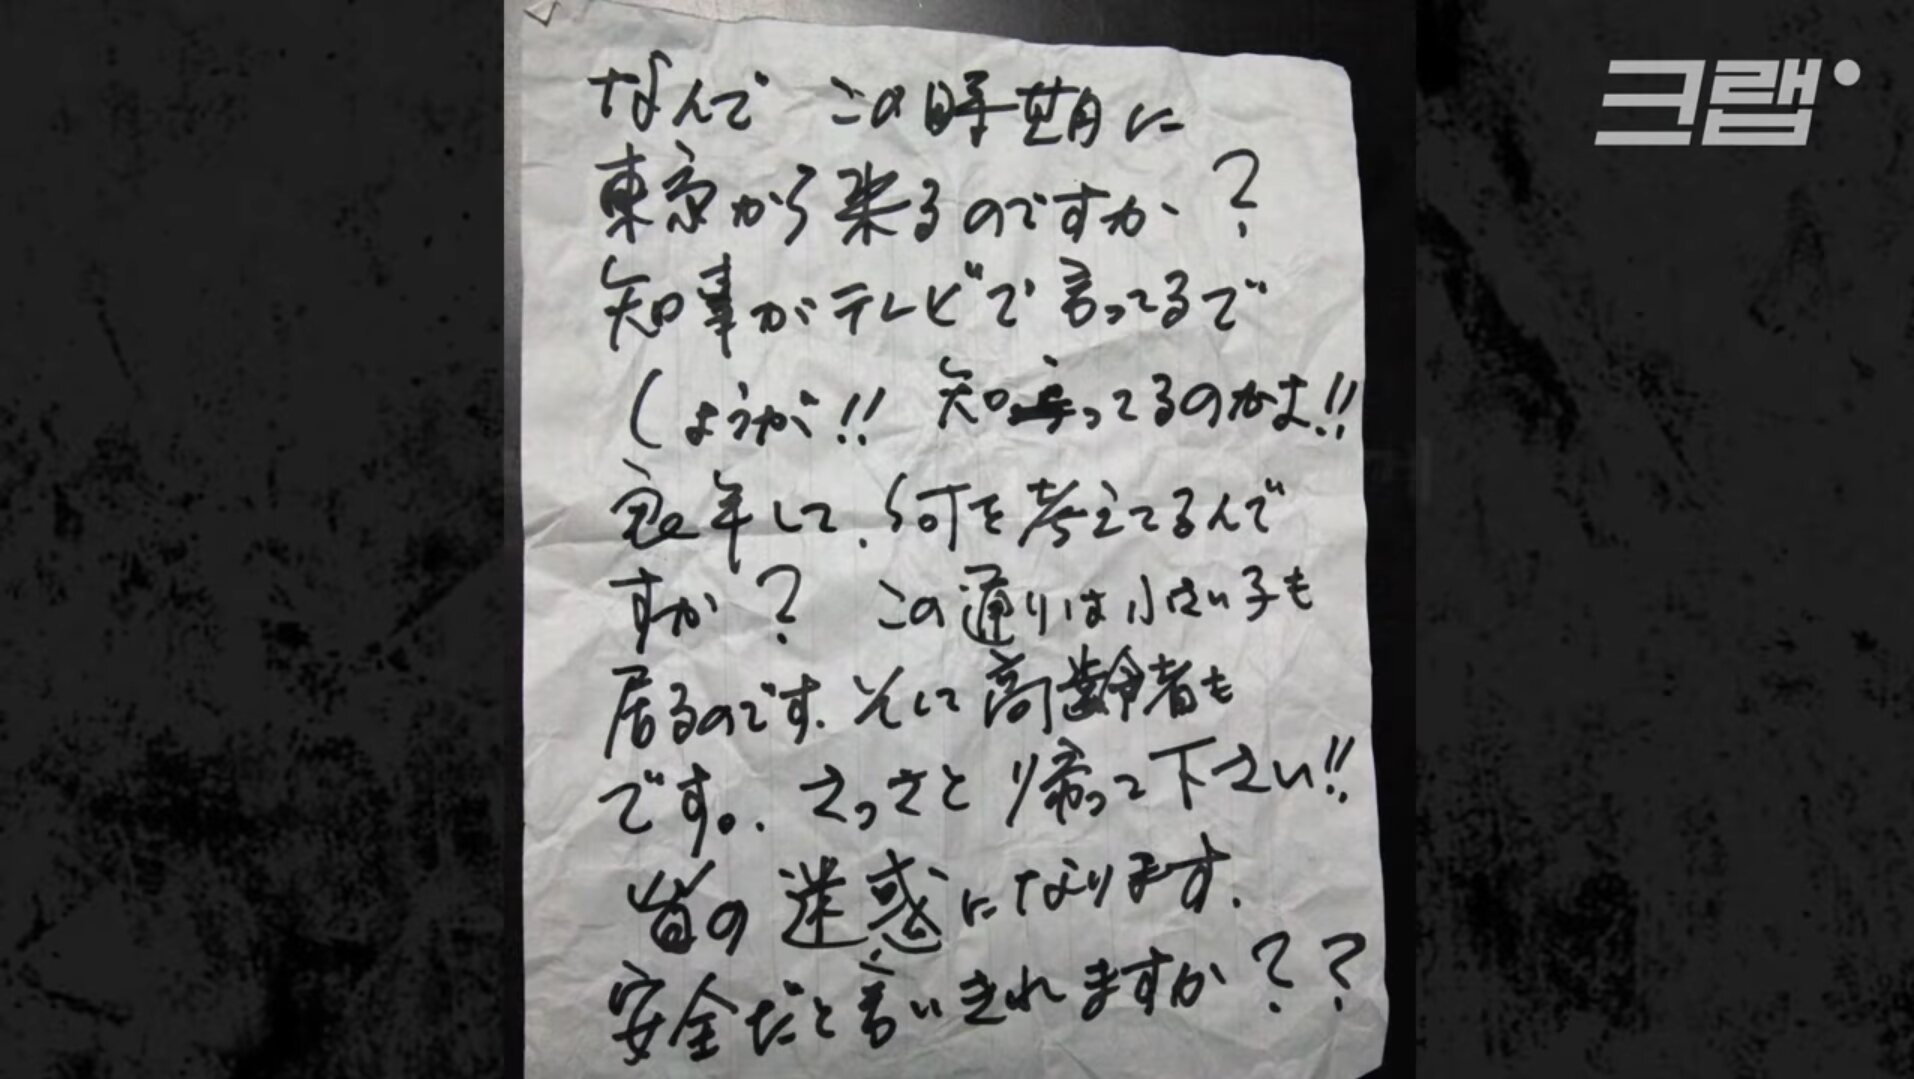 크랩
なんで この時期に
東京から来るのですか?
知事がテレビで言ってるで
しょうが!! 知ってるのかよ!!
良い年して、何を考えてるんで
すか? この通りは小さい子も
居るのです、そして高齢者も
です。さっさと帰って下さい!!
皆の迷惑になります。
安全だと言いきれますか??